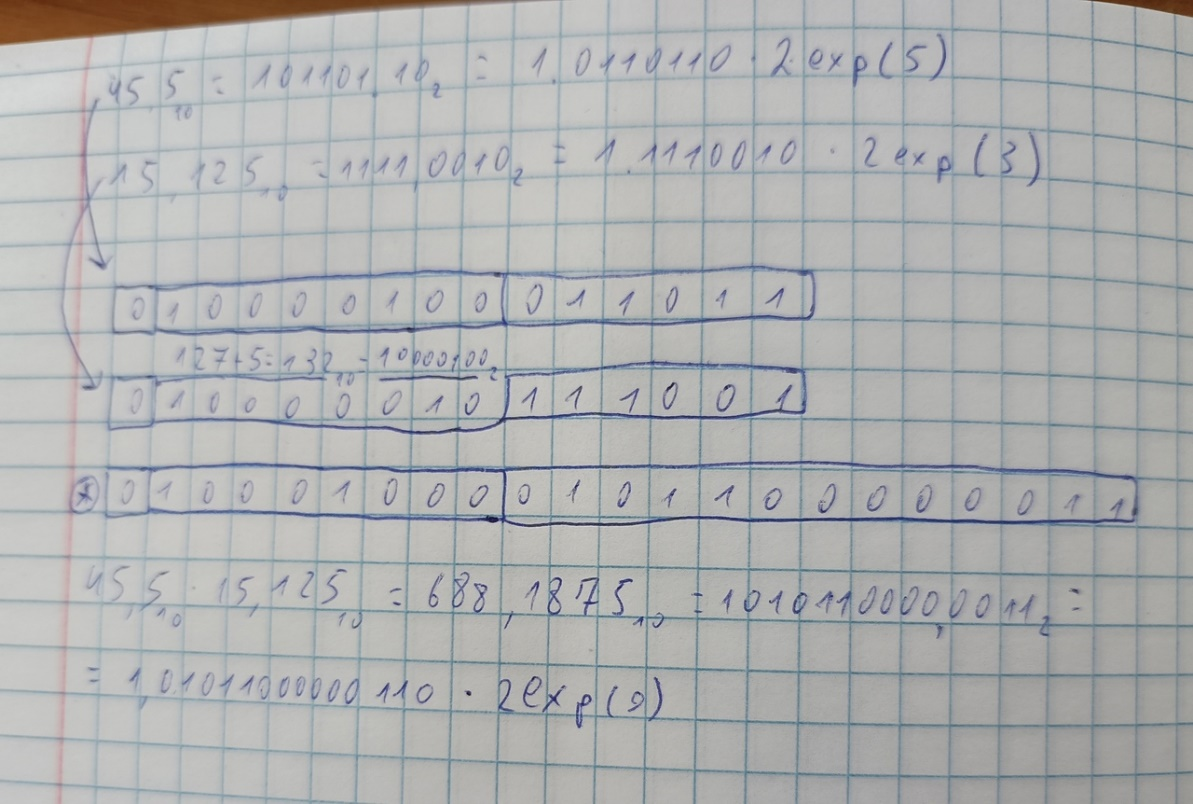 45,5₁₀ = 101101,10₂ = 1,0110110 · 2exp(5)
15,125₁₀ = 1111,0010₂ = 1,1110010 · 2exp(3)
0 1 0 0 0 0 1 0 0 0 1 1 0 1 1
127+5=132₁₀=10000100₂
0 1 0 0 0 0 0 1 0 1 1 1 0 0 1
* 0 1 0 0 0 1 0 0 0 0 1 0 1 1 0 0 0 0 0 0 1 1
45,5₁₀ · 15,125₁₀ = 688,1875₁₀ = 1010110000,0011₂ =
= 1,01011000000110 · 2exp(9)